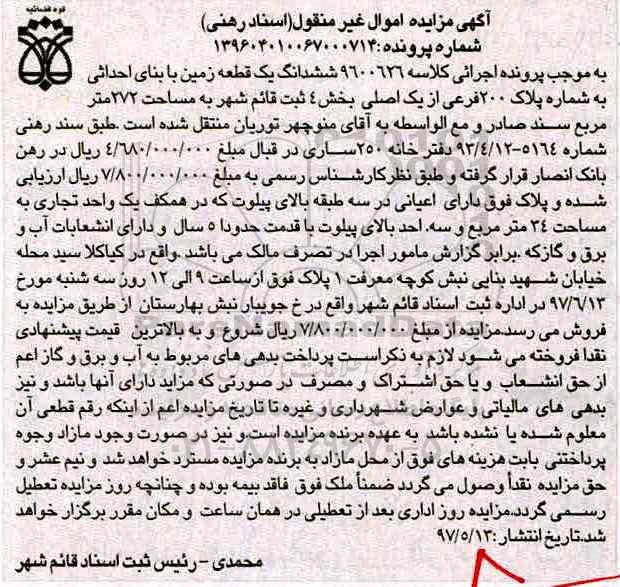 قوه قضائیه
آگهی مزایده اموال غیر منقول(اسناد رهنی)
شماره پرونده:۱۳۹۶۰۴۰۱۰۰۶۷۰۰۰۷۱۴
به موجب پرونده اجرائی کلاسه ۹۶۰۰۶۲۶ ششدانگ یک قطعه زمین با بنای احداثی
به شماره پلاک ۲۰۰فرعی از یک اصلی بخش۴ ثبت قائم شهر به مساحت ۲۷۲متر
مربع سند صادر و مع الواسطه به آقای منوچهر توریان منتقل شده است .طبق سند رهنی
شماره ۵۱۶۴-۹۳/۴/۱۲ دفتر خانه ۲۵۰ساری در قبال مبلغ ۴/۶۸۰/۰۰۰/۰۰۰ ریال در رهن
بانک انصار قرار گرفته و طبق نظرکارشناس رسمی به مبلغ ۷/۸۰۰/۰۰۰/۰۰۰ ریال ارزیابی
شده و پلاک فوق دارای اعیانی در سه طبقه بالای پیلوت که در همکف یک واحد تجاری به
مساحت ۳۴ متر مربع و سه. احد بالای پیلوت با قدمت حدودا ۵ سال و دارای انشعابات آب و
برق و گازکه .برابر گزارش مامور اجرا در تصرف مالک می باشد .واقع در کیاکلا سید محله
خیابان شهید بنایی نبش کوچه معرفت ۱ پلاک فوق ازساعت ۹ الی ۱۲ روز سه شنبه مورخ
۹۷/۶/۱۳ در اداره ثبت اسناد قائم شهر واقع در خ جویبار نبش بهارستان از طریق مزایده به
فروش می رسد.مزایده از مبلغ ۷/۸۰۰/۰۰۰/۰۰۰ ریال شروع و به بالاترین قیمت پیشنهادی
نقدا فروخته می شود لازم به ذکراست پرداخت بدهی های مربوط به آب و برق و گاز اعم
از حق انشعاب و یا حق اشتراک و مصرف در صورتی که مزاید دارای آنها باشد و نیز
بدهی های مالیاتی و عوارض شهرداری و غیره تا تاریخ مزایده اعم از اینکه رقم قطعی آن
معلوم شده یا نشده باشد به عهده برنده مزایده است.و نیز در صورت وجود مازاد وجوه
پرداختنی بابت هزینه های فوق از محل مازاد به برنده مزایده مسترد خواهد شد و نیم عشر و
حق مزایده نقدأ وصول می گردد ضمنأ ملک فوق فاقد بیمه بوده و چنانچه روز مزایده تعطیل
رسمی گردد.مزایده روز اداری بعد از تعطیلی در همان ساعت و مکان مقرر برگزار خواهد
شد.تاریخ انتشار:۹۷/۵/۱۳
محمدی - رئیس ثبت اسناد قائم شهر